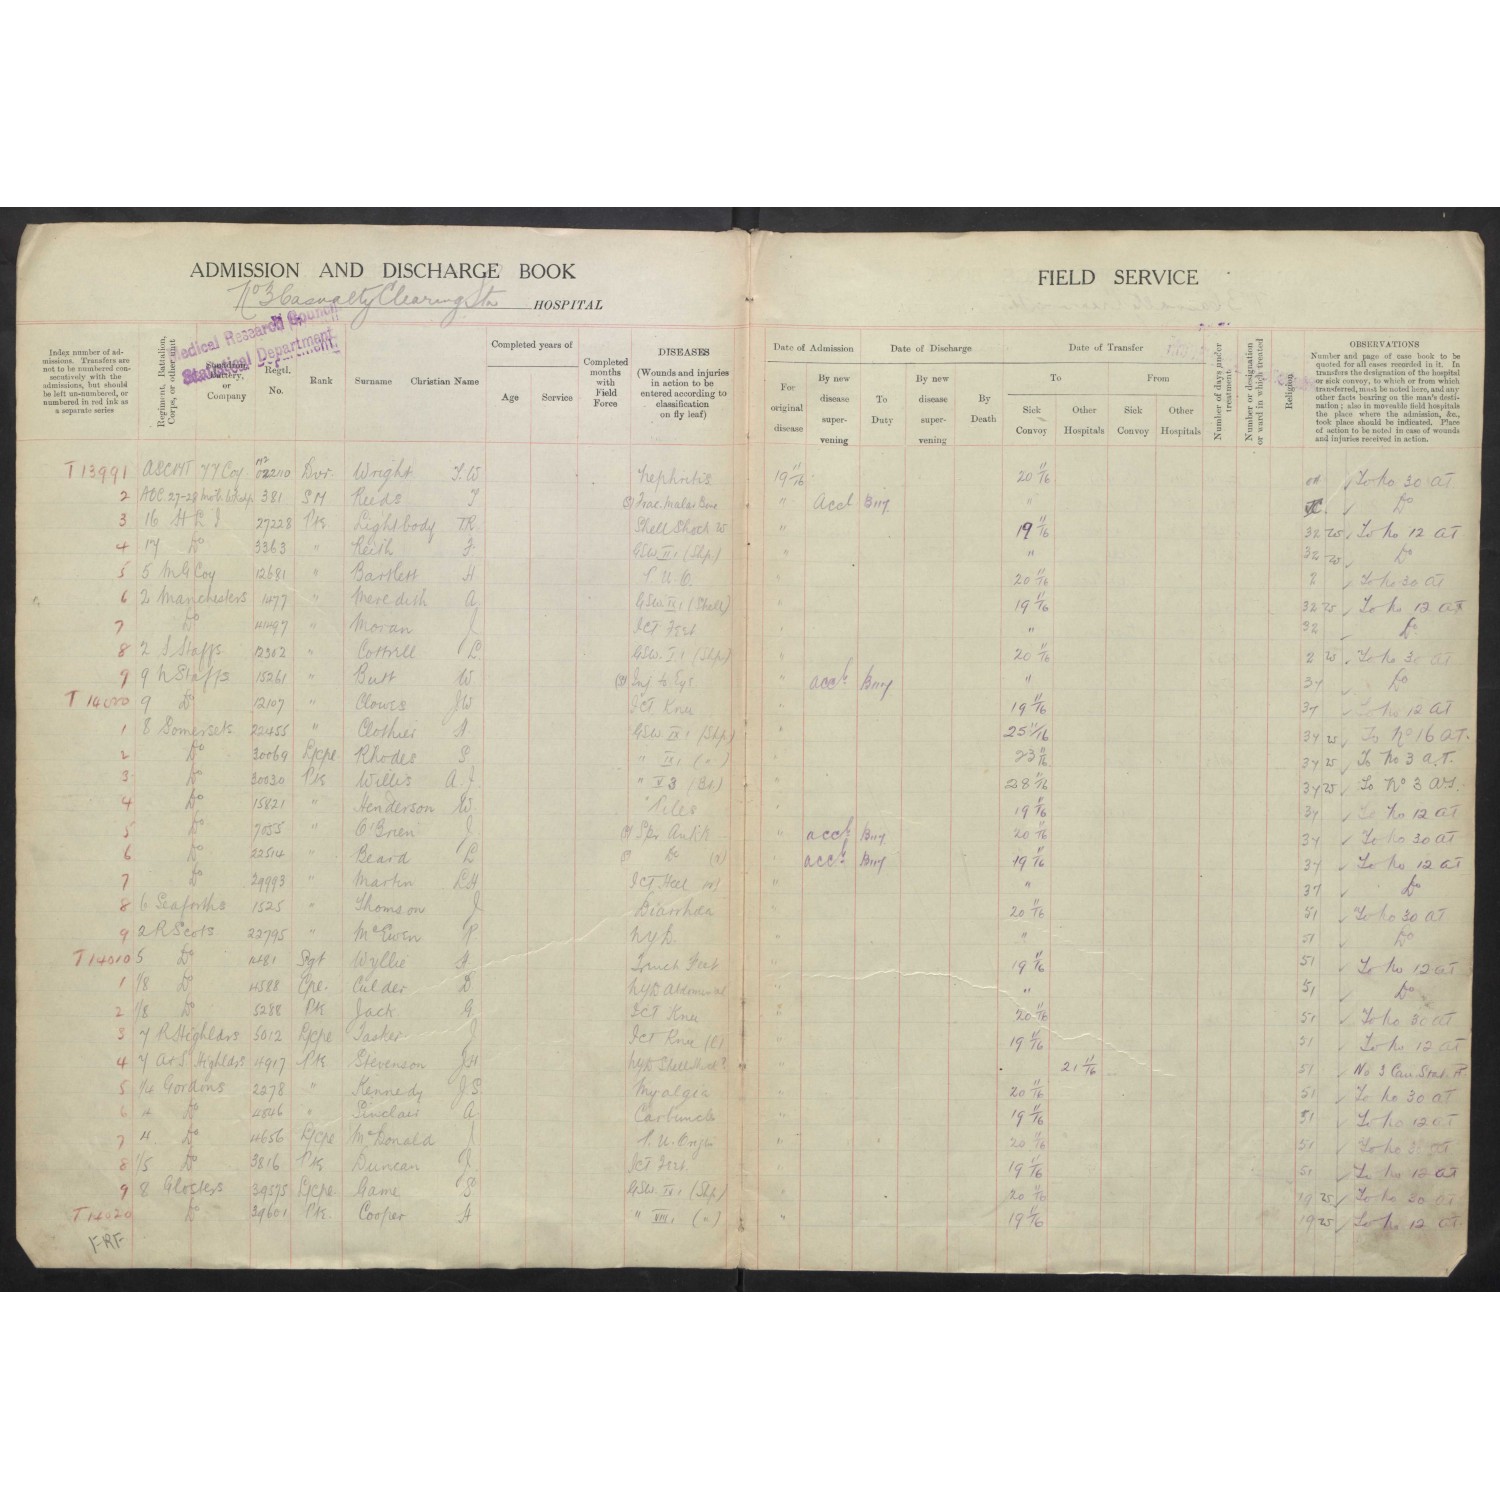 ADMISSION AND DISCHARGE BOOK
No 3 Casualty Clearing Stn HOSPITAL
FIELD SERVICE
Medical Research Council
Statistical Department.
Index number of admissions. Transfers are not to be numbered consecutively with the admissions, but should be left un-numbered, or numbered in red ink as a separate series
Regiment, Battalion, Corps, or other unit
Squadron, Battery, or Company
Regtl. No.
Rank
Surname
Christian Name
Completed years of
Age
Service
Completed months with Field Force
DISEASES
(Wounds and injuries in action to be entered according to classification on fly leaf)
Date of Admission
For original disease
By new disease supervening
Date of Discharge
To Duty
By new disease supervening
By Death
Date of Transfer
To
From
Sick Convoy
Other Hospitals
Sick Convoy
Other Hospitals
Number of days under treatment
Number or designation or ward in which treated
Religion
OBSERVATIONS
Number and page of case book to be quoted for all cases recorded in it. In transfers the designation of the hospital or sick convoy, to which or from which transferred, must be noted here, and any other facts bearing on the man's destination; also in moveable field hospitals the place where the admission, &c., took place should be indicated. Place of action to be noted in case of wounds and injuries received in action.
T 13991 ASCMT 77 Coy M2 02210 Dvr Wright T.W Nephritis 19 11/16 20 11/16 To No 30 AT
2 381 SM Reeds T Frac. Malar Bone " Accl Biry " Do
3 16 H L I 27228 Pte Lightbody TR Shell Shock W " 19 11/16 32 25 To No 12 AT
4 17 Do 3363 " Keith F. GSW II 1 (Shp) " " 32 25 Do
5 5 M G Coy 12681 " Bartlett H P.U.O. 20 11/16 2 To No 30 AT
6 2 Manchesters 1477 " Meredith A. (Shell) 19 11/16 32 25 To No 12 AT
7 Do 41497 " Moran J. ICT Feet " 32 Do
8 2 S Staffs 12302 " Cottrill L. GSW. I 1 (Shp) 20 11/16 2 25 To No 30 AT
9 9 N Staffs 15261 " Butt W Inj to Eye " accl Biry " 37 Do
T 14000 9 Do 12107 " Clowes JW ICT Knee 19 11/16 37 To No 12 AT
1 8 Somersets 22455 " Clothier A GSW IX 1 (Shp) 25 11/16 34 25 To No 16 A.T.
2 Do 30069 L/Cpe Rhodes S " IX 1 (") 23 11/16 34 25 To No 3 A.T.
3 Do 30030 Pte Willis A.J. " V 3 (Bt) 28 11/16 34 25 To No 3 A.T.
4 Do 15821 " Henderson W. Piles 19 11/16 34 To No 12 AT
5 Do 7055 " O'Brien J. Spr Ankle " accl Biry 20 11/16 34 To No 30 AT
6 Do 22514 " Beard L Do " accl Biry 19 11/16 34 To No 12 AT
7 Do 29993 " Martin ICT Heel " 37 Do
8 6 Seaforths 1525 " Thomson J Diarrhoea 20 11/16 51 To No 30 AT
9 2 R Scots 22795 " McEwen R N.Y.D. " 51 Do
T 14010 5 Do 1481 Sgt Wyllie A Trench Feet 19 11/16 51 To No 12 AT
1 1/8 Do 4588 Cpe. Calder D NYD Abdominal " 51 Do
2 1/8 Do 5288 Pte Jack G. ICT Knee 20 11/16 51 To No 30 AT
3 7 R Highldrs 5012 L/Cpe Tasker J ICT Knee (L) 19 11/16 51 To No 12 AT
4 7 A & S Highldrs 4917 Pte Stevenson JH NYD Shell Shock? 21 11/16 51 No 3 Can Stat. H
5 1/4 Gordons 2278 " Kennedy J.S. Myalgia 20 11/16 51 To No 30 AT
6 4 Do 4546 " Sinclair A. Carbuncle 19 11/16 51 To No 12 AT
7 4 Do 4656 L/Cpe McDonald J P.U. Origin 20 11/16 51 To No 30 AT
8 1/5 Do 3816 Pte Duncan J. ICT Feet 19 11/16 51 To No 12 AT
9 8 Glosters 39575 L/Cpe Game S. GSW. IX 1 (Shp) 20 11/16 19 25 To No 30 AT
T 14020 Do 39601 Pte. Cooper A " VIII 1 (") 19 11/16 19 25 To No 12 AT
FRF